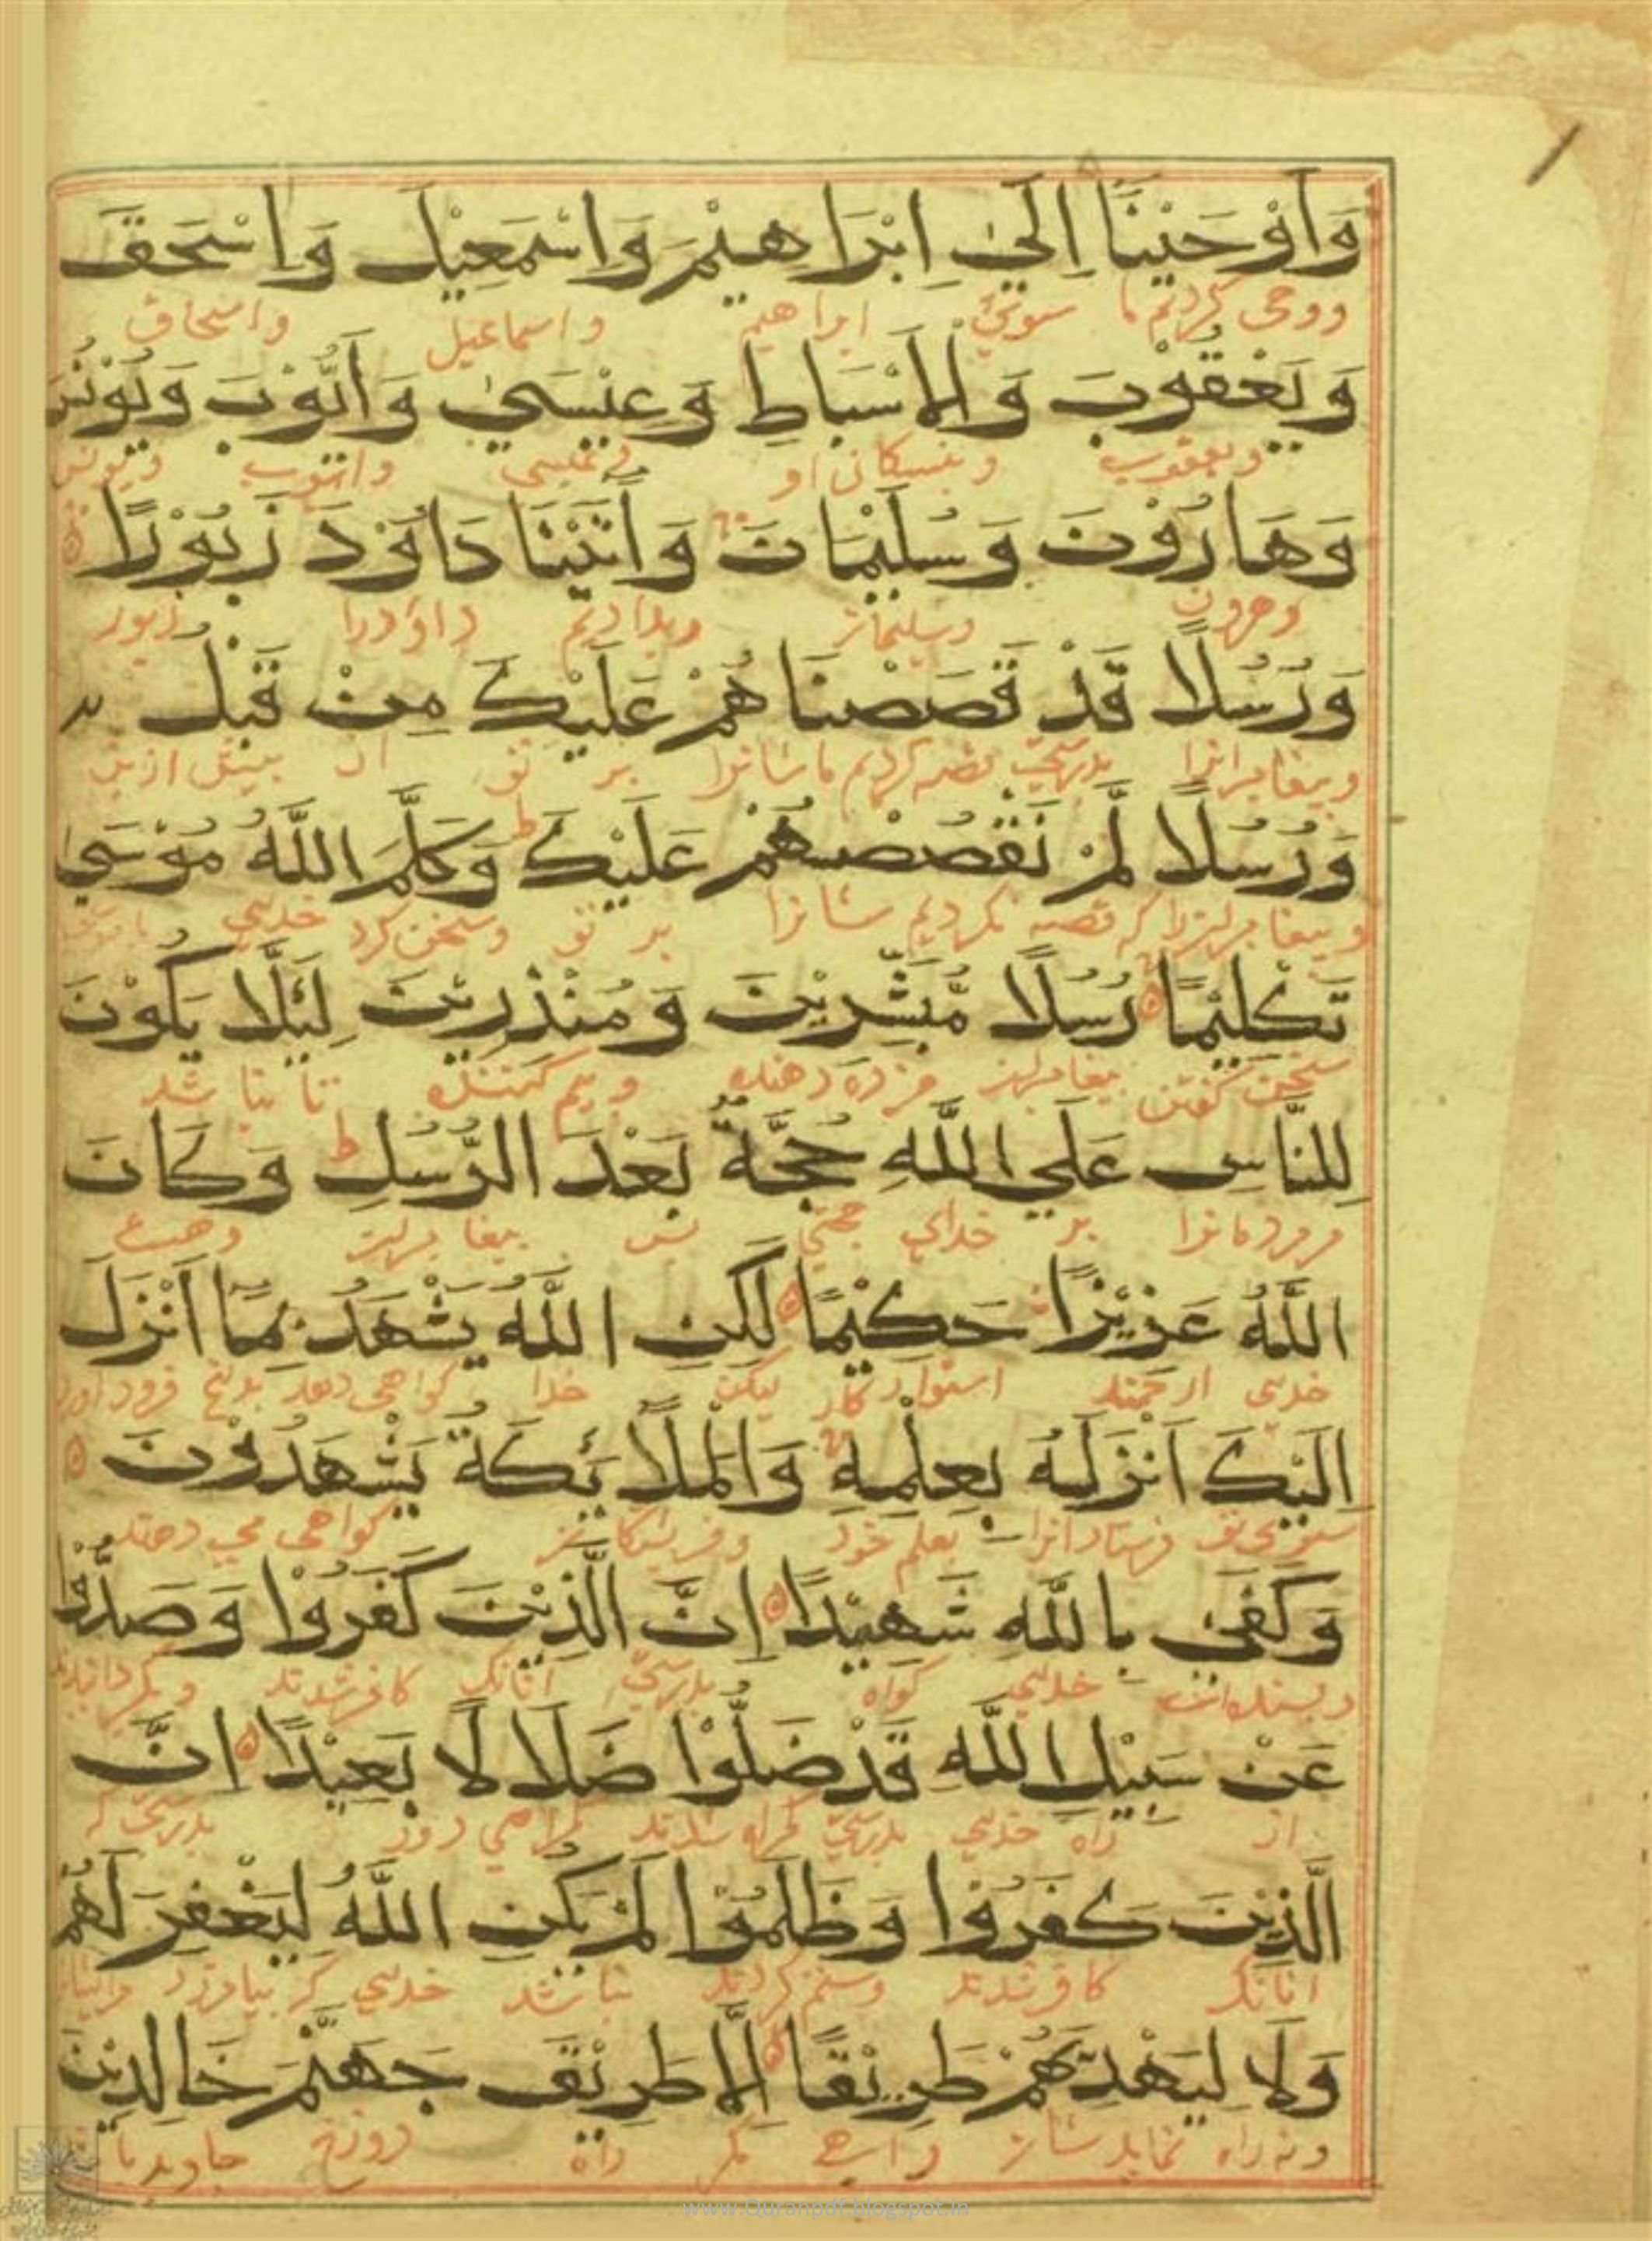 وَاَوْحَيْنَا اِلَىٰ اِبْرَاهِيْمَ وَاِسْمٰعِيْلَ وَاِسْحٰقَ
ووحی کردیم ما سوی ابراهیم واسماعیل واسحاق
وَيَعْقُوْبَ وَالْاَسْبَاطِ وَعِيْسَىٰ وَاَيُّوْبَ وَيُوْنُسَ
ویعقوب و او وعیسی وایوب ویونس
وَهَارُوْنَ وَسُلَيْمَانَ وَاٰتَيْنَا دَاوٗدَ زَبُوْرًا
وهرون وسلیمان وبدادیم داؤدرا زبور
وَرُسُلًا قَدْ قَصَصْنَا هُمْ عَلَيْكَ مِنْ قَبْلُ
وپیغامبرانرا بدرستی قصه کردیم ما شانرا بر تو از پیش ازین
وَرُسُلًا لَّمْ نَقْصُصْهُمْ عَلَيْكَ ط وَكَلَّمَ اللّٰهُ مُوْسَىٰ
وپیغامبرانرا که قصه نکردیم شانرا بر تو وسخن کرد خدای
تَكْلِيْمًا رُسُلًا مُّبَشِّرِيْنَ وَمُنْذِرِيْنَ لِئَلَّا يَكُوْنَ
سخن گفتن پیغامبران مزده دهنده وبیم کننده تا نباشد
لِلنَّاسِ عَلَي اللّٰهِ حُجَّةٌ بَعْدَ الرُّسُلِ ط وَكَانَ
مردمانرا بر خدای حجتی پس پیغامبران وهست
اللّٰهُ عَزِيْزًا حَكِيْمًا لٰكِنِ اللّٰهُ يَشْهَدُ بِمَا اَنْزَلَ
خدای ارجمند استوار کار لیکن خدا کواهی دهد بدانچ فرود اورد
اِلَيْكَ اَنْزَلَهٗ بِعِلْمِهٖ وَالْمَلَائِكَةُ يَشْهَدُوْنَ
سوی تو فرستاد انرا بعلم خود وفریشتکان کواهی می دهند
وَكَفَىٰ بِاللّٰهِ شَهِيْدًا اِنَّ الَّذِيْنَ كَفَرُوْا وَصَدُّوْا
وبسنده است خدای کواه بدرستی انانک کافر شدند
عَنْ سَبِيْلِ اللّٰهِ قَدْ ضَلُّوْا ضَلَالًا بَعِيْدًا اِنَّ
از راه خدای بدرستی کمراه شدند کمراهی دور بدرستی که
الَّذِيْنَ كَفَرُوْا وَظَلَمُوْا لَمْ يَكُنِ اللّٰهُ لِيَغْفِرَ لَهُمْ
انانک کافر شدند وستم کردند نباشد خدای کی بیامرزد
وَلَا لِيَهْدِيَهُمْ طَرِيْقًا اِلَّا طَرِيْقَ جَهَنَّمَ خَالِدِيْنَ
ونه راه نماید شان راهی مکر راه دوزخ
www.Quranpdf.blogspot.in